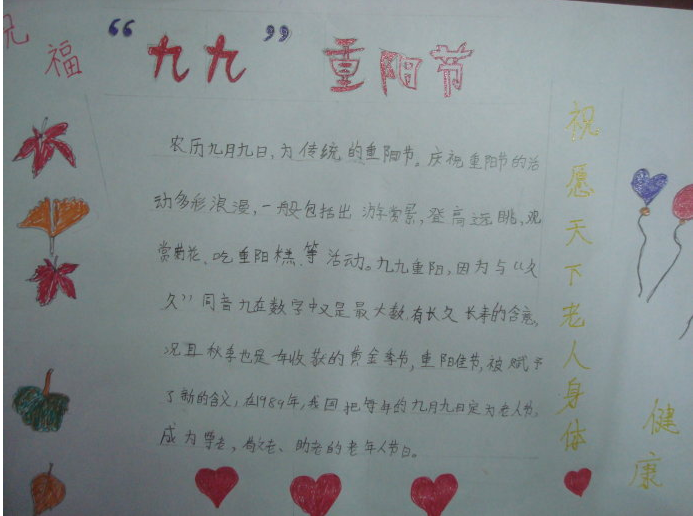 祝福
“九九”重阳节
农历九月九日，为传统的重阳节。庆祝重阳节的活
动多彩浪漫，一般包括出游赏景，登高远眺，观
赏菊花、吃重阳糕等活动。九九重阳，因为与“久
久”同音九在数字中又是最大数，有长久长寿的含意，
况且秋季也是一年收获的黄金季节，重阳佳节，被赋予
了新的含义，在1989年，我国把每年的九月九日定为老人节，
成为尊老，敬老、助老的老年人节日。
祝愿天下老人身体
健康